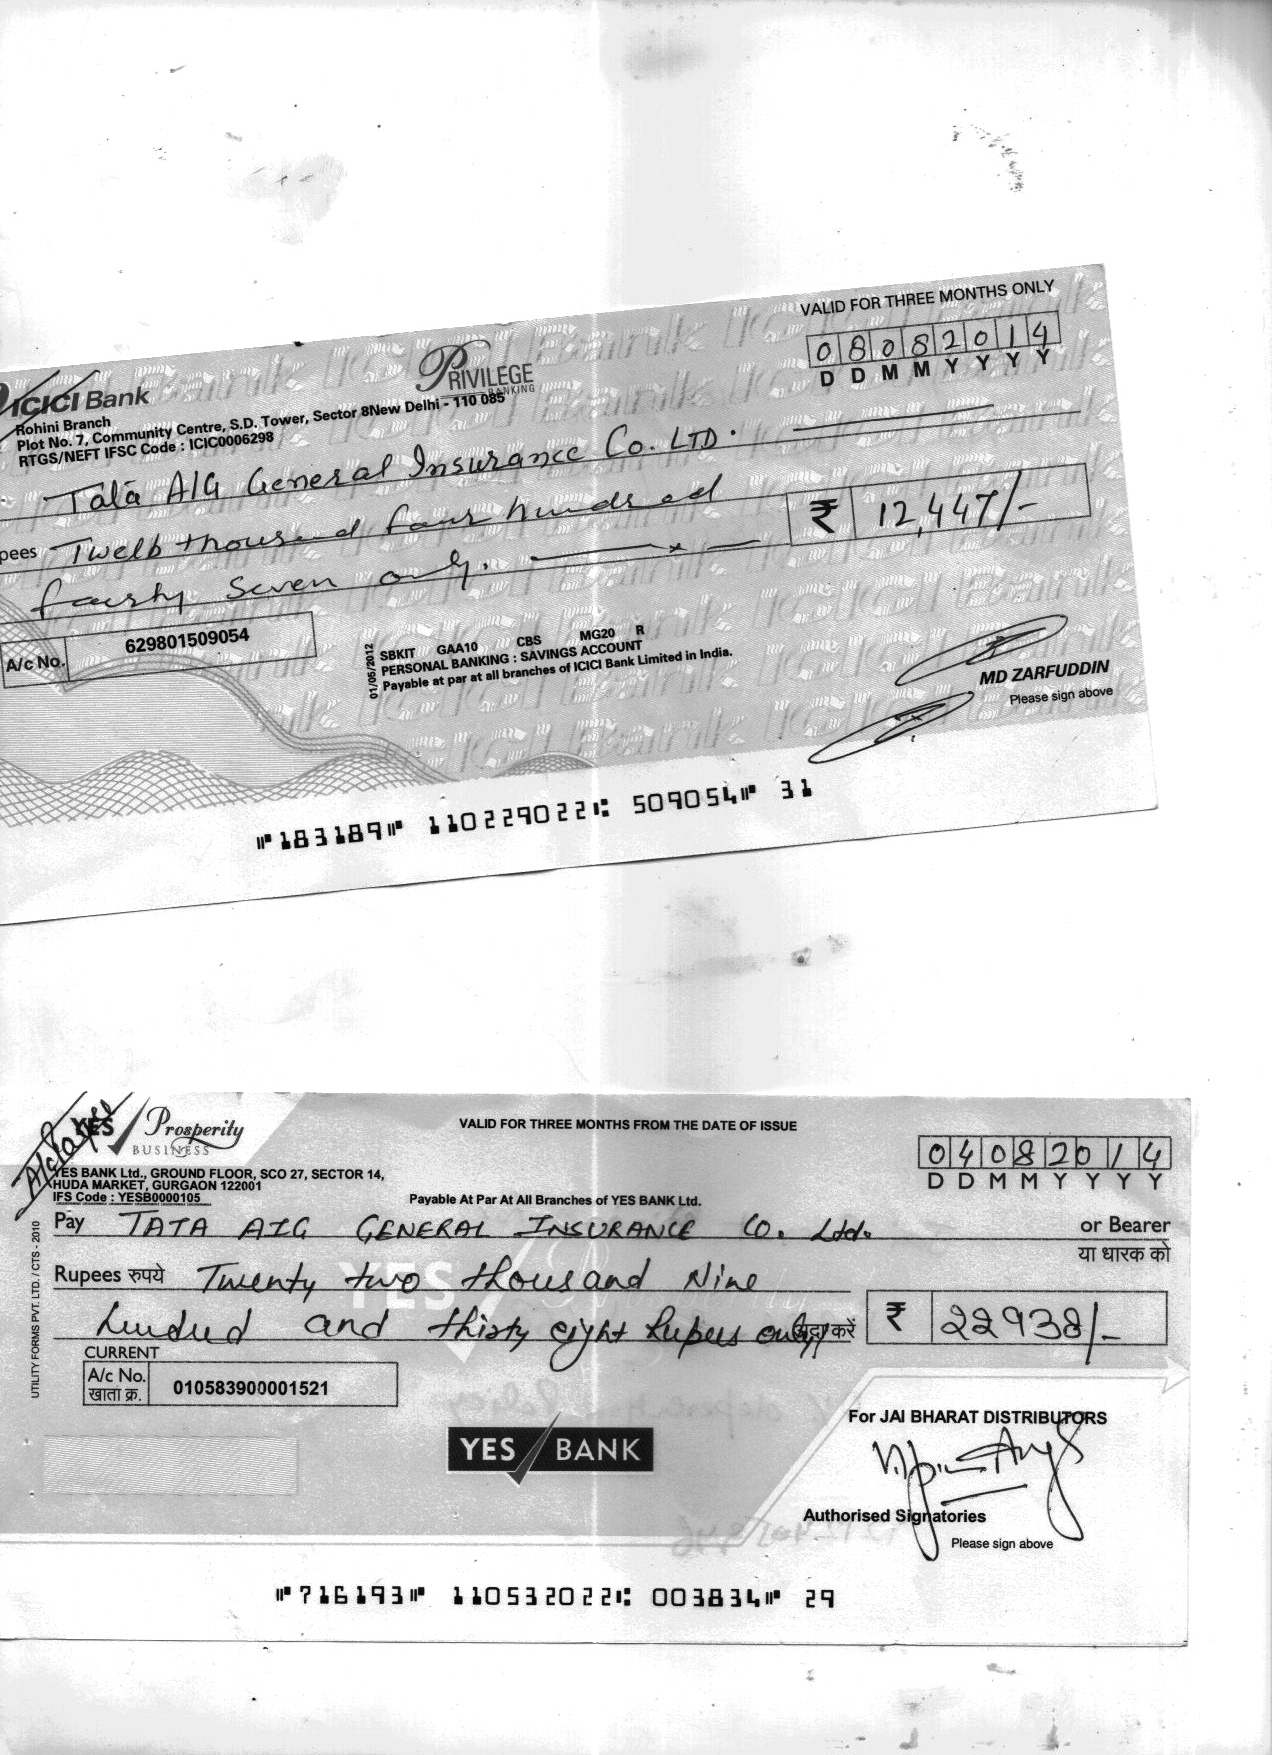 VALID FOR THREE MONTHS ONLY
08082014
D D M M Y Y Y Y
ICICI Bank
PRIVILEGE
BANKING
Rohini Branch
Plot No. 7, Community Centre, S.D. Tower, Sector 8New Delhi - 110 085
RTGS/NEFT IFSC Code : ICIC0006298
Tata AIG General Insurance Co. LTD.
pees Twelb thousend four hundred
₹ 12,447/-
fourty Seven only.
A/c No. 629801509054
01/05/2012
SBKIT GAA10 CBS MG20 R
PERSONAL BANKING : SAVINGS ACCOUNT
Payable at par at all branches of ICICI Bank Limited in India.
MD ZARFUDDIN
Please sign above
⑈183189⑈ 110229022⑆ 509054⑈ 31
YES Prosperity
BUSINESS
VALID FOR THREE MONTHS FROM THE DATE OF ISSUE
04082014
D D M M Y Y Y Y
A/c Payee
YES BANK Ltd., GROUND FLOOR, SCO 27, SECTOR 14,
HUDA MARKET, GURGAON 122001
IFS Code : YESB0000105
Payable At Par At All Branches of YES BANK Ltd.
Pay TATA AIG GENERAL INSURANCE Co. Ltd. or Bearer
या धारक को
Rupees रुपये Twenty two thousand Nine
YES
hundud and thirty eight Rupees only अदा करें ₹ 22938/-
CURRENT
A/c No. 010583900001521
खाता क्र.
UTILITY FORMS PVT. LTD. / CTS - 2010
YES BANK
For JAI BHARAT DISTRIBUTORS
Authorised Signatories
Please sign above
⑈716193⑈ 110532022⑆ 003834⑈ 29